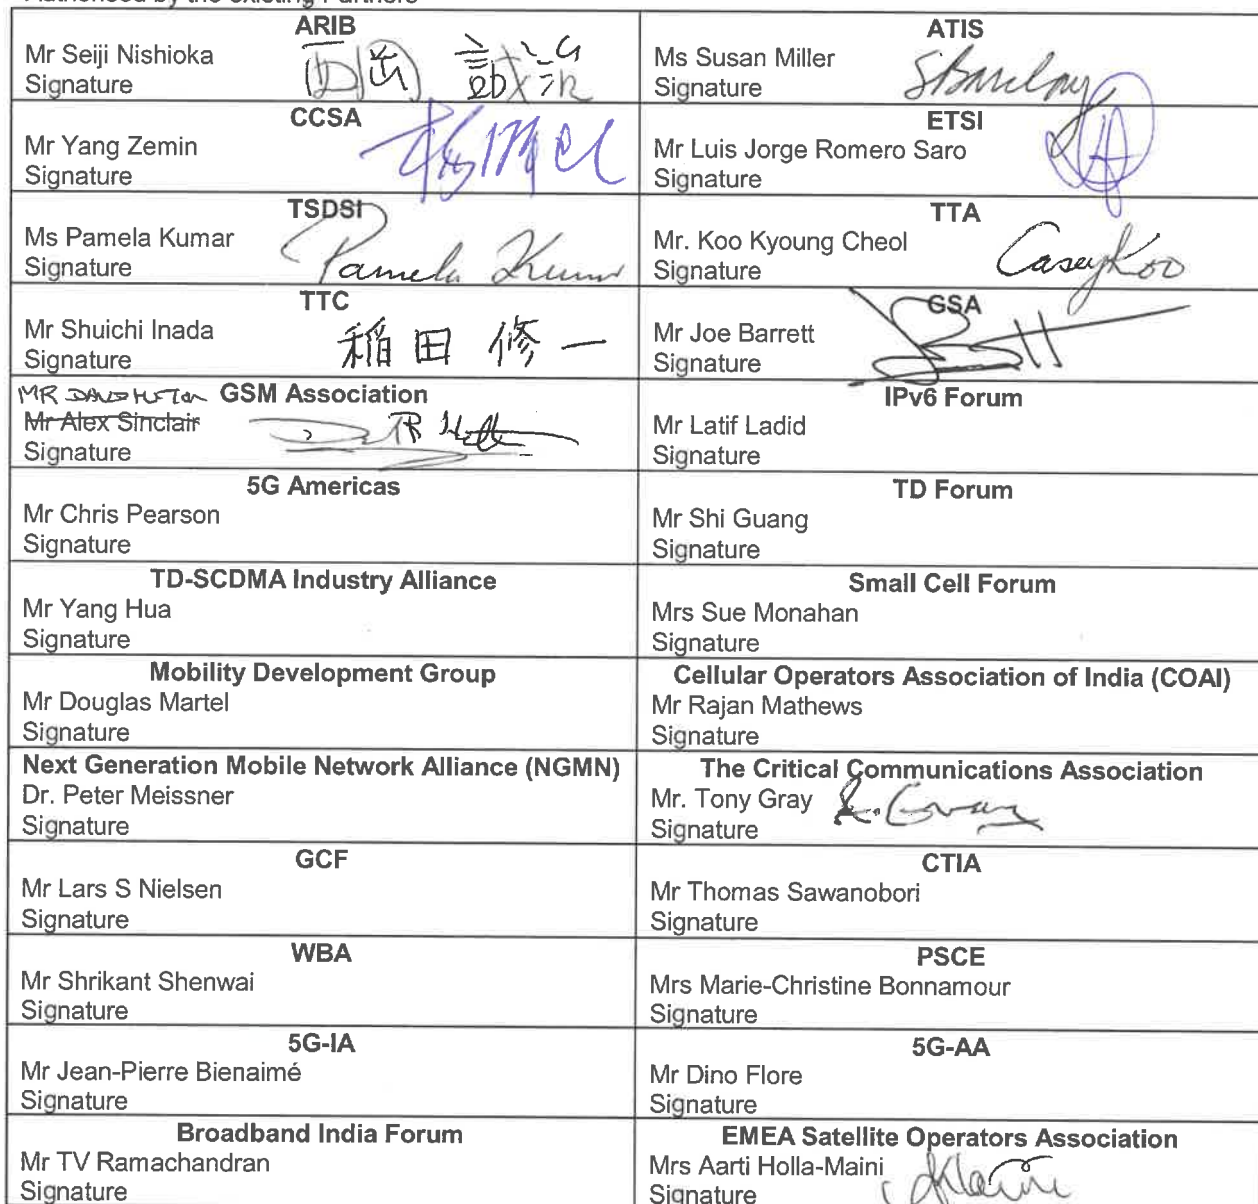 Authorised by the existing Partners
ARIB
Mr Seiji Nishioka
Signature
西岡 誠治
ATIS
Ms Susan Miller
Signature
CCSA
Mr Yang Zemin
Signature
ETSI
Mr Luis Jorge Romero Saro
Signature
TSDSI
Ms Pamela Kumar
Signature
Pamela Kumar
TTA
Mr. Koo Kyoung Cheol
Signature
Casey Koo
TTC
Mr Shuichi Inada
Signature
稲田 修一
GSA
Mr Joe Barrett
Signature
MR GSM Association
Mr Alex Sinclair
Signature
IPv6 Forum
Mr Latif Ladid
Signature
5G Americas
Mr Chris Pearson
Signature
TD Forum
Mr Shi Guang
Signature
TD-SCDMA Industry Alliance
Mr Yang Hua
Signature
Small Cell Forum
Mrs Sue Monahan
Signature
Mobility Development Group
Mr Douglas Martel
Signature
Cellular Operators Association of India (COAI)
Mr Rajan Mathews
Signature
Next Generation Mobile Network Alliance (NGMN)
Dr. Peter Meissner
Signature
The Critical Communications Association
Mr. Tony Gray
Signature
GCF
Mr Lars S Nielsen
Signature
CTIA
Mr Thomas Sawanobori
Signature
WBA
Mr Shrikant Shenwai
Signature
PSCE
Mrs Marie-Christine Bonnamour
Signature
5G-IA
Mr Jean-Pierre Bienaimé
Signature
5G-AA
Mr Dino Flore
Signature
Broadband India Forum
Mr TV Ramachandran
Signature
EMEA Satellite Operators Association
Mrs Aarti Holla-Maini
Signature